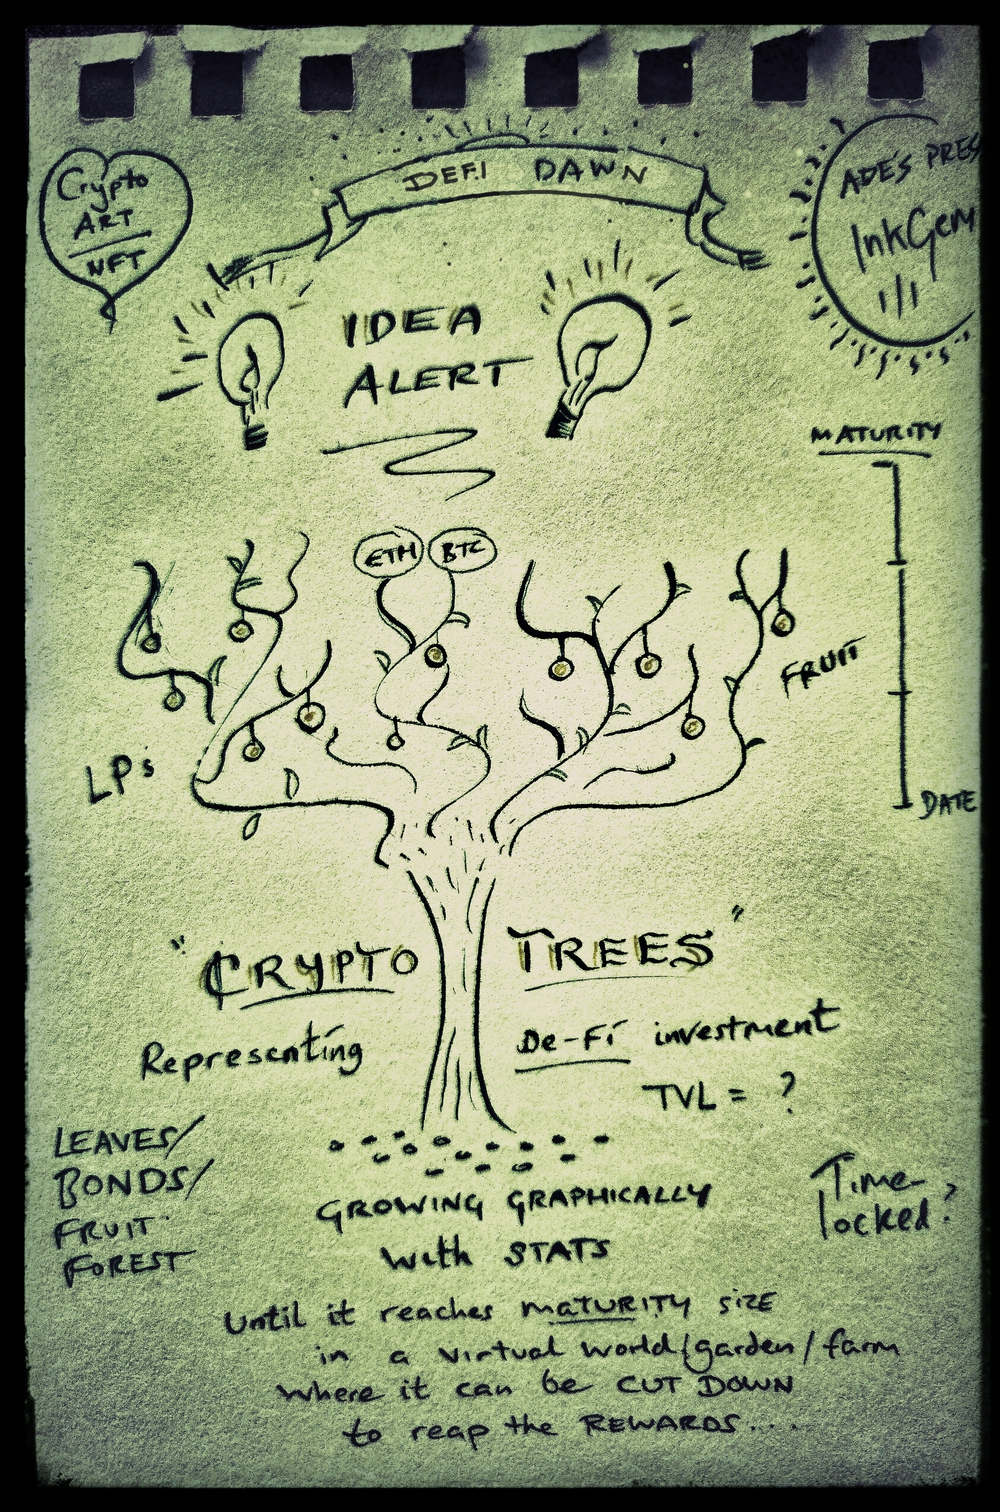 DEFI DAWN
Crypto
ART
NFT
ADE'S PRES
InkGem
IDEA
ALERT
MATURITY
ETH BTC
FRUIT
LPs
DATE
"CRYPTO TREES"
Representing De-Fi investment
TVL = ?
LEAVES/
BONDS/
FRUIT
FOREST
Time-
locked?
GROWING GRAPHICALLY
with STATS
Until it reaches MATURITY SIZE
in a virtual world/garden/farm
where it can be CUT DOWN
to reap the REWARDS....